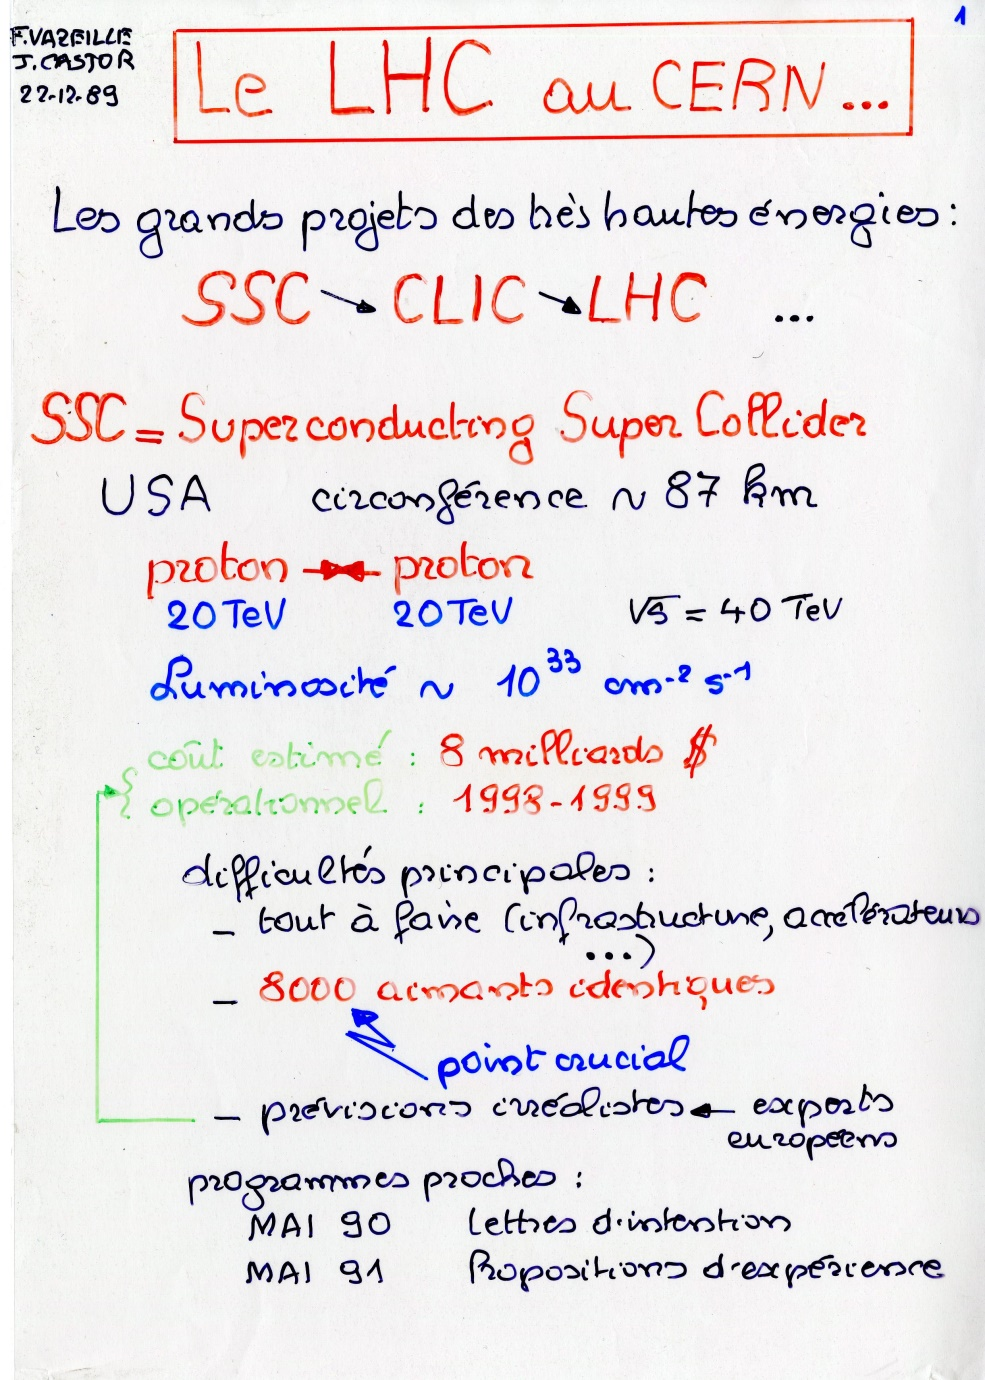 1
F.VAZEILLE
J.CASTOR
22-12-89
Le LHC au CERN...
Les grands projets des très hautes énergies :
SSC → CLIC → LHC ...
SSC = Superconducting Super Collider
USA circonférence ~ 87 km
proton →← proton
20 TeV 20 TeV √s = 40 TeV
Luminosité ~ 10³³ cm⁻² s⁻¹
coût estimé : 8 milliards $
opérationnel : 1998-1999
difficultés principales :
– tout à faire (infrastructure, accélérateurs
...)
– 8000 aimants identiques
point crucial
– prévisions irréalistes ← experts
européens
programmes proches :
MAI 90 Lettres d'intention
MAI 91 Propositions d'expérience